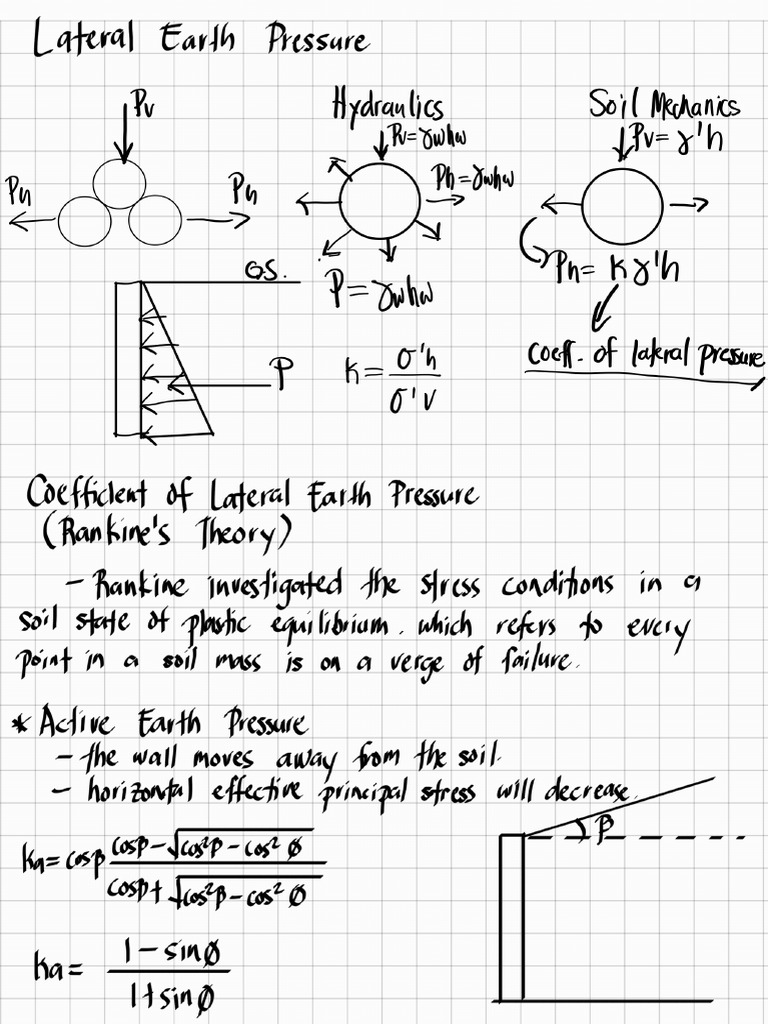 Lateral Earth Pressure
Pv
Hydraulics
Soil Mechanics
Pv = γwhw
Pv = γ'h
Ph
Ph
Ph = γwhw
G.S.
P = γwhw
Ph = kγ'h
P
k = σ'h / σ'v
coeff. of lateral pressure
Coefficient of Lateral Earth Pressure
(Rankine's Theory)
- Rankine investigated the stress conditions in a
soil state of plastic equilibrium. which refers to every
point in a soil mass is on a verge of failure.
* Active Earth Pressure
- the wall moves away from the soil.
- horizontal effective principal stress will decrease.
β
ka = cosβ (cosβ - √(cos²β - cos²Ø)) / (cosβ + √(cos²β - cos²Ø))
ka = (1 - sinØ) / (1 + sinØ)